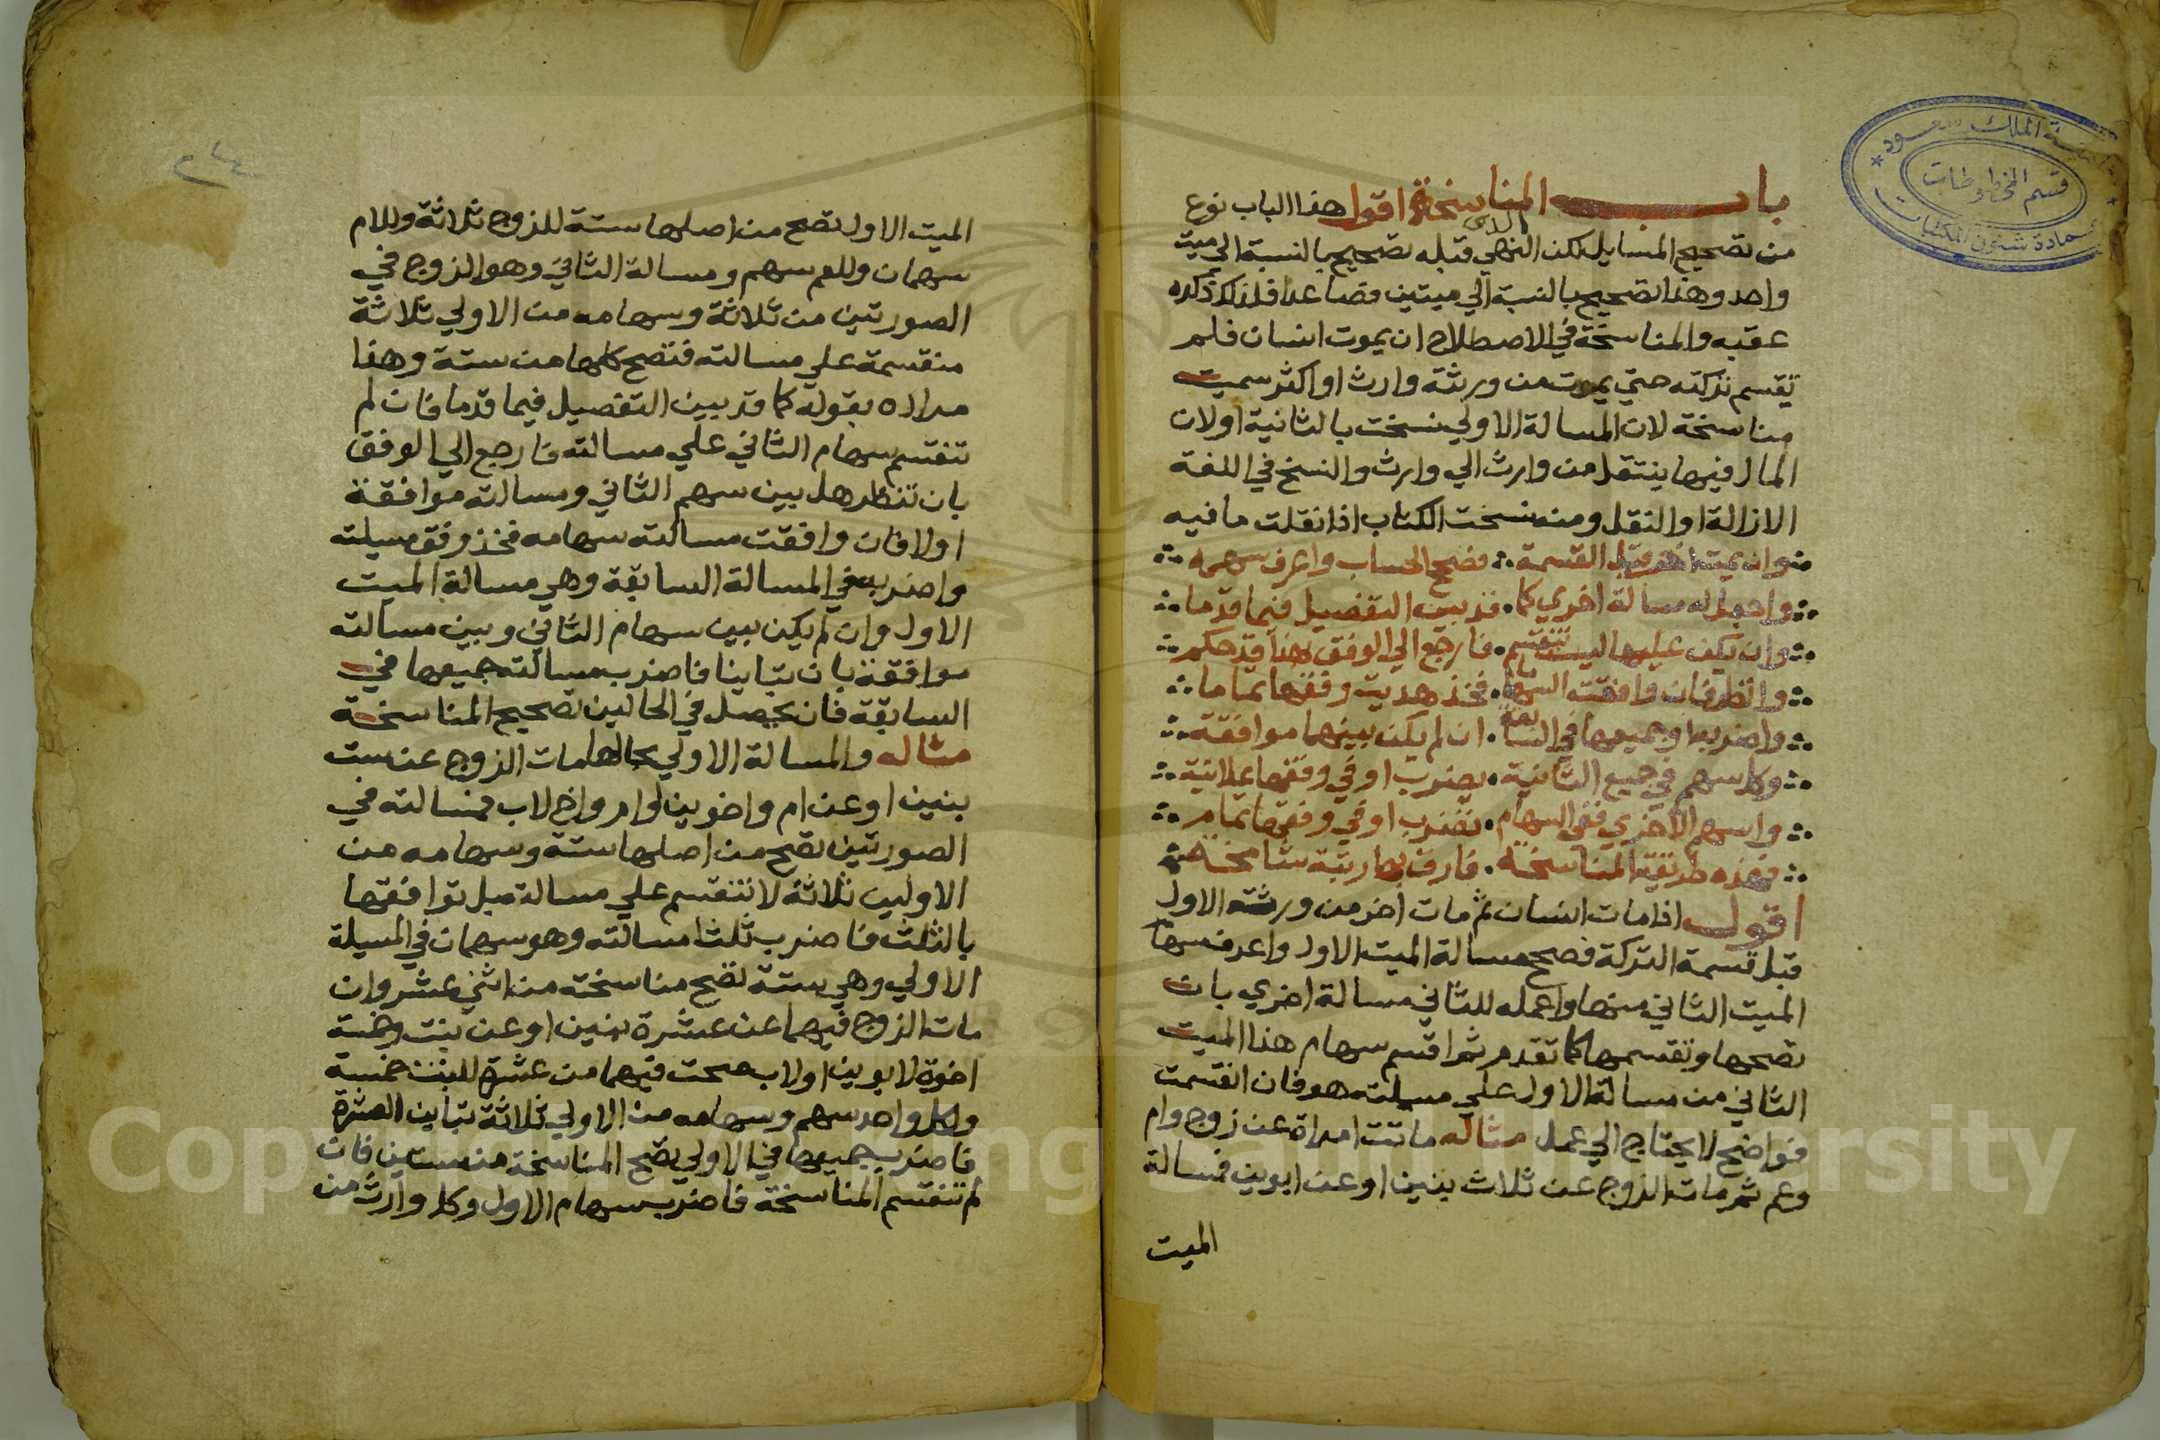 باب المناسخة اقول هذا الباب نوع
من تصحيح المسايل لكن الذي قبله تصحيح بالنسبة الي ميت
واحد وهذا تصحيح بالنسبة الي ميتين فصاعدا فلذلك ذكره
عقبه والمناسخة في الاصطلاح ان يموت انسان فلم
تقسم تركته حتي يموت من ورثته وارث او اكثر سميت
مناسخة لان المسالة الاولي نسخت بالثانية اولان
المال فيها ينتقل من وارث الي وارث والنسخ في اللغة
الازالة او النقل ومنه نسخت الكتاب اذا نقلت ما فيه
وان يمت اخر قبل القسمة فصحح الحساب واعرف سهمه
واجعل له مسالة اخري كما قد بين التفصيل فيما قدما
وان تكن عليها ليست تنقسم فارجع الي الوفق بهذا قد حكم
وانظر فان وافقت السهام فخذ هديت وفقها تماما
واضربه او جميعها في السابقة ان لم يكن بينهما موافقة
وكل سهم في جميع الثانية يضرب او في وفقها علانية
واسهم الاخري ففي السهام تضرب او في وفقها تمام
فهذه طريقة المناسخة فارق بها رتبة شامخة
اقول اذا مات انسان ثم مات اخر من ورثته الاول
قبل قسمة التركة فصحح مسالة الميت الاول واعرف سهام
الميت الثاني منها واعمله للثاني مسالة اخري بان
تصححها وتقسمها كما تقدم ثم اقسم سهام هذا الميت
الثاني من مسالة الاول علي مسيلته هو فان انقسمت
فواضح لا يحتاج الي عمل مثاله ماتت امراة عن زوج وام
وعم ثم مات الزوج عن ثلاث بنين او عن ابوين فمسالة
الميت
الميت الاول تصح من اصلها ستة للزوج ثلاثة وللام
سهمان وللعم سهم ومسالة الثاني وهو الزوج في
الصورتين من ثلاثة وسهامه من الاولي ثلاثة
منقسمة علي مسالته فتصح كلها من ستة وهذا
مراده بقوله كما قد بين التفصيل فيما قدما فان لم
تنقسم سهام الثاني علي مسالته فارجع الي الوفق
بان تنظر هل بين سهم الثاني ومسالته موافقة
اولا فان وافقت مسالته سهامه فخذ وفق مسيلته
واضربه في المسالة السابقة وهي مسالة الميت
الاول وان لم يكن بين سهام الثاني وبين مسالته
موافقة بان تباينا فاضرب مسالته جميعها في
السابقة فان يحصل في الحالين تصحيح المناسخة
مثاله والمسالة الاولي بحالها مات الزوج عن ست
بنين او عن ام واخوين لام واخ لاب فمسالته في
الصورتين تصح من اصلها ستة وسهامه من
الاولين ثلاثة لا تنقسم علي مسالة بل توافقها
بالثلث فاضرب ثلث مسالته وهو سهمان في المسيلة
الاولي وهي ستة تصح مناسخته من اثني عشر وان
مات الزوج فيهما عن عشرة بنين او عن بنت وخمسة
اخوة لابوين او لاب صحت فيهما من عشرة للبنت خمسة
ولكل واحد سهم وسهامه من الاولي ثلاثة تباين العشرة
فاضرب جميعها في الاولي تصح المناسخة من ستين فان
لم تنقسم المناسخة فاضرب سهام الاول وكل وارث من
جامعة الملك سعود
قسم المخطوطات
عمادة شئون المكتبات